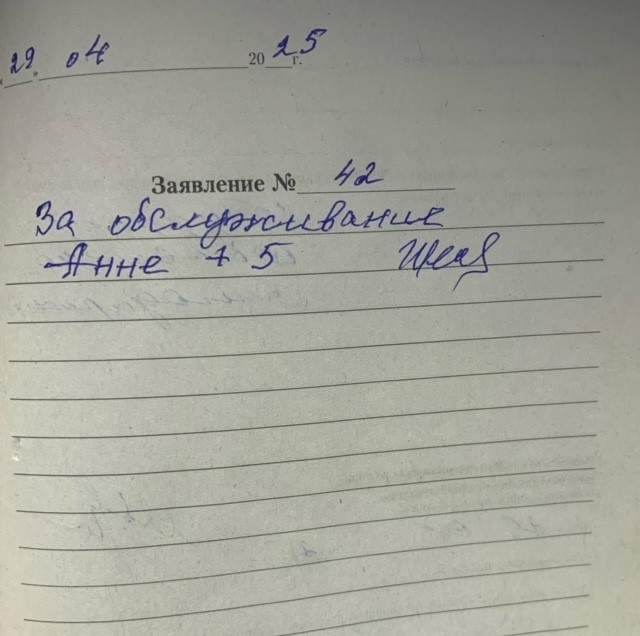 29 04 2025 г.
Заявление № 42
За обслуживание
Анне + 5